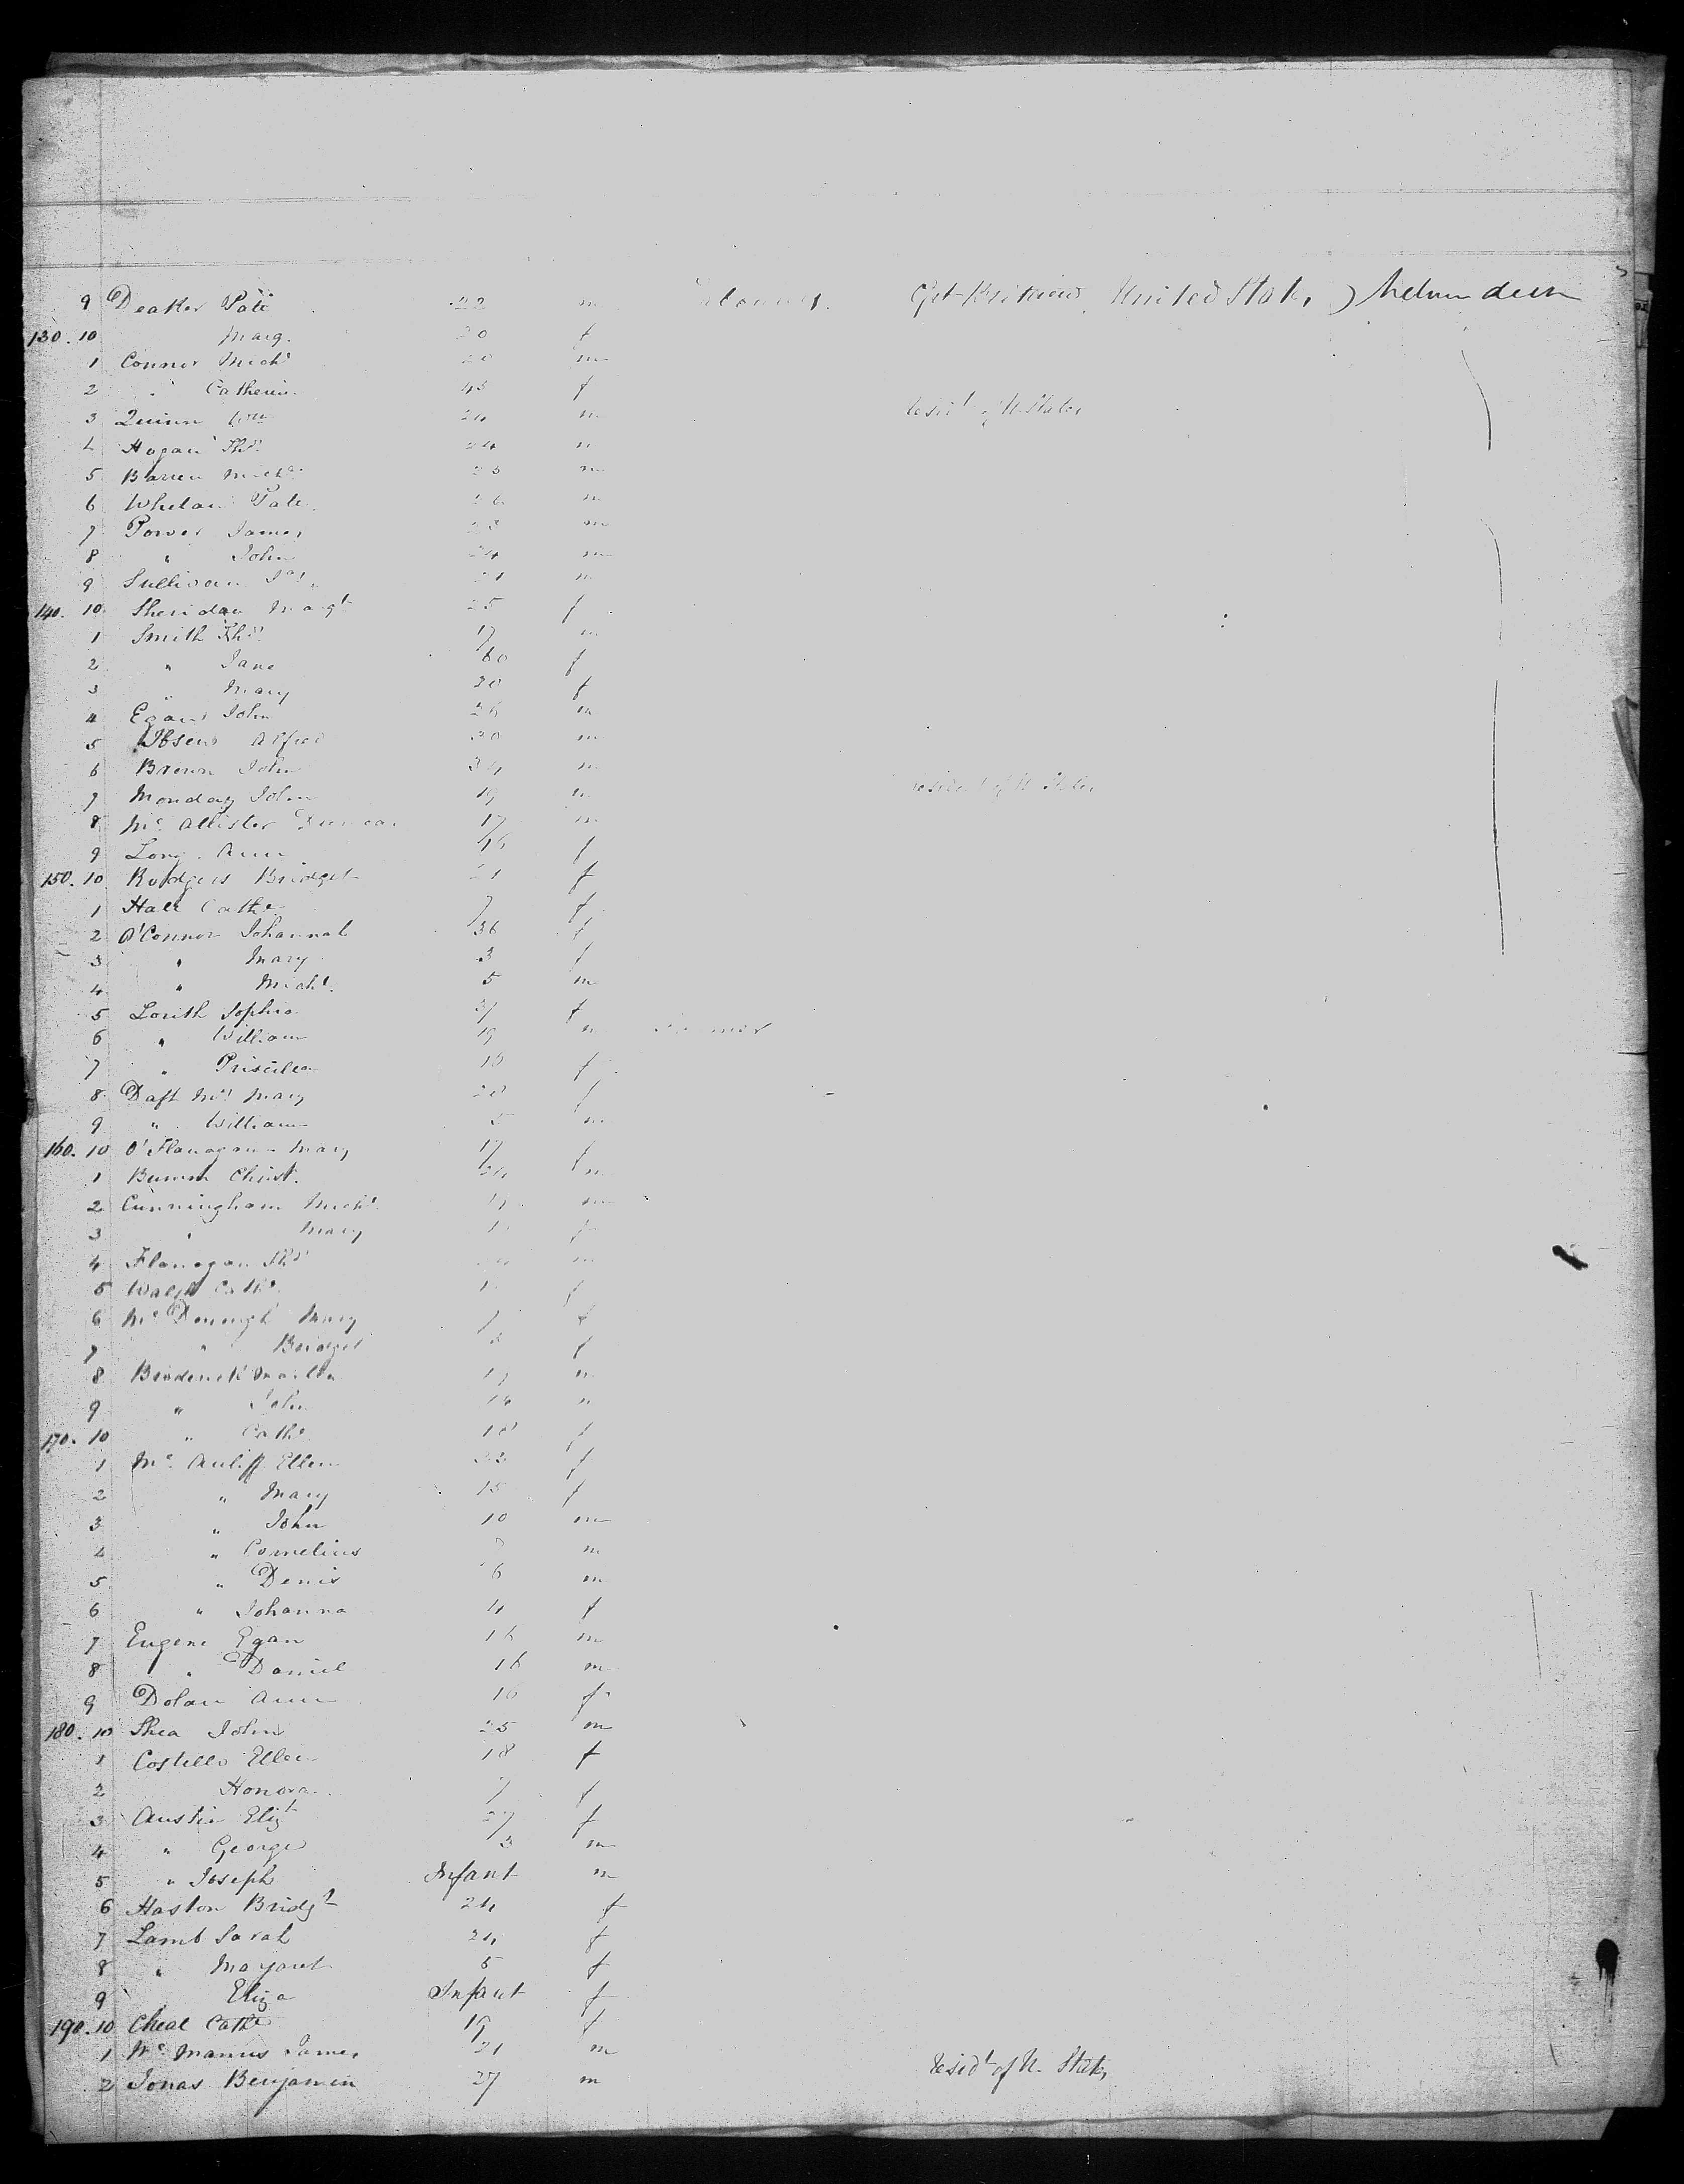 9 Deaker Patk 22 m Labourer Gt Britain United States
130. 10 Marg. 20 f
1 Connor Michl 20 m
2 " Catherin 45 f
3 Quinn Wm 24 m Residt of U. States
4 Hogan Thos 24 m
5 Michl m
6 Whelan Patk 26 m
7 Power James 23 m
8 " John 24 m
9 Sullivan Jas 21 m
140. 10 Sheridan Margt 25 f
1 Smith Thos 17 m
2 " Jane 60 f
3 " Mary 20 f
4 Egan John 26 m
5 Alfred 30 m
6 Brown John 34 m
7 Monday John 19 m resident of U States
8 Mc Allister Duncan 17 m
9 Long Ann 46 f
150. 10 Rodgers Bridget 21 f
1 Hall Cathe 7 f
2 O'Connor Johannah 36 f
3 " Mary 3 f
4 " Michl. 5 m
5 Louth Sophia 37 f
6 " William 19 m
7 " Priscilla 10 f
8 Daft Mrs Mary 20 f
9 " William 5 m
160. 10 O'Flanagan Mary 17 f
1 Christ. 24 m
2 Cunningham Michl m
3 " Mary f
4 Flanagan Thos m
5 Walsh Cathe f
6 Mc Donough Mary f
7 " Bridget f
8 Broderick 17 m
9 " John 14 m
170. 10 " Cathe 10 f
1 Mc Auliff Ellen 32 f
2 " Mary 13 f
3 " John 10 m
4 " Cornelius 7 m
5 " Denis 6 m
6 " Johanna 4 f
7 Eugene Egan 16 m
8 " Daniel 16 m
9 Dolan Ann 10 f
180. 10 Shea John 25 m
1 Costello Ellen 18 f
2 Honora 7 f
3 Austin Elizt 27 f
4 " George 3 m
5 " Joseph Infant m
6 Haston Bridgt 24 f
7 Lamb Sarah 24 f
8 " Margaret 5 f
9 Eliza Infant f
190. 10 Cheal Cathe 19 f
1 Mc Manus James 21 m
2 Jonas Benjamin 27 m Residt of U. States